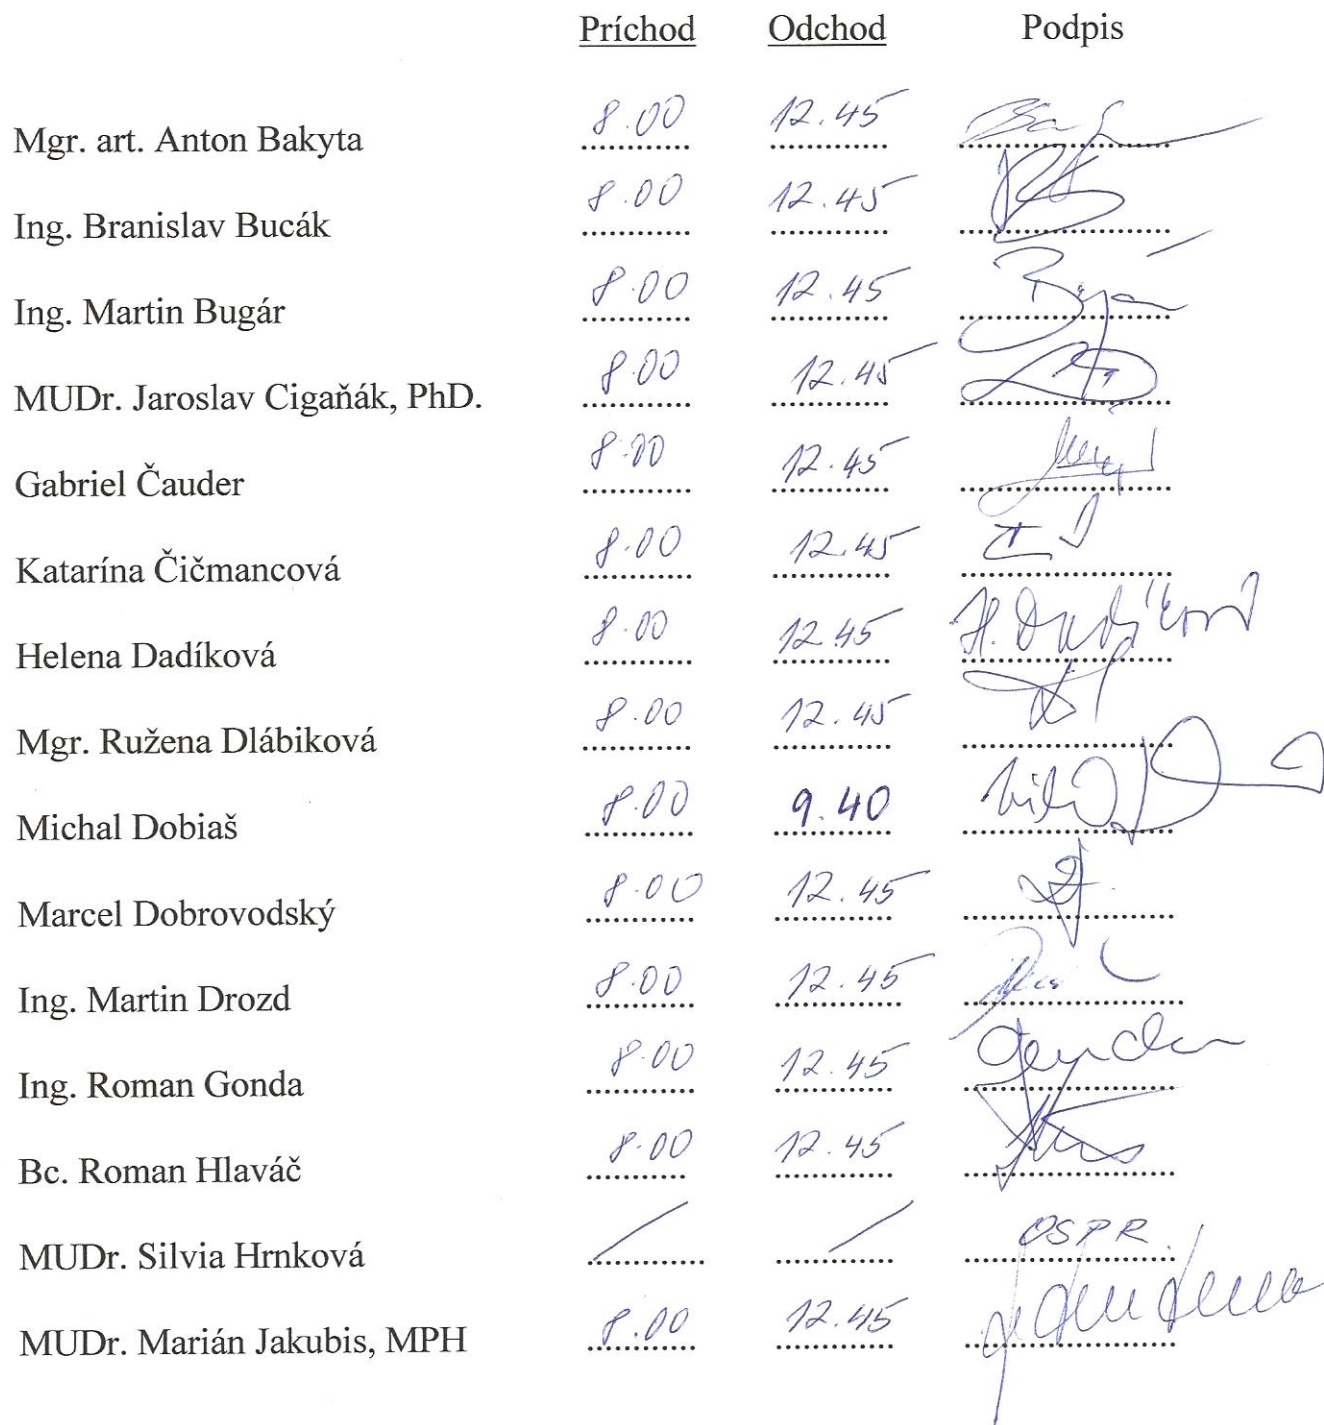 Príchod Odchod Podpis
Mgr. art. Anton Bakyta 8.00 12.45
Ing. Branislav Bucák 8.00 12.45
Ing. Martin Bugár 8.00 12.45
MUDr. Jaroslav Cigaňák, PhD. 8.00 12.45
Gabriel Čauder 8.00 12.45
Katarína Čičmancová 8.00 12.45
Helena Dadíková 8.00 12.45 H. Dadíková
Mgr. Ružena Dlábiková 8.00 12.45
Michal Dobiaš 8.00 9.40
Marcel Dobrovodský 8.00 12.45
Ing. Martin Drozd 8.00 12.45
Ing. Roman Gonda 8.00 12.45
Bc. Roman Hlaváč 8.00 12.45
MUDr. Silvia Hrnková / / OSPR.
MUDr. Marián Jakubis, MPH 8.00 12.45